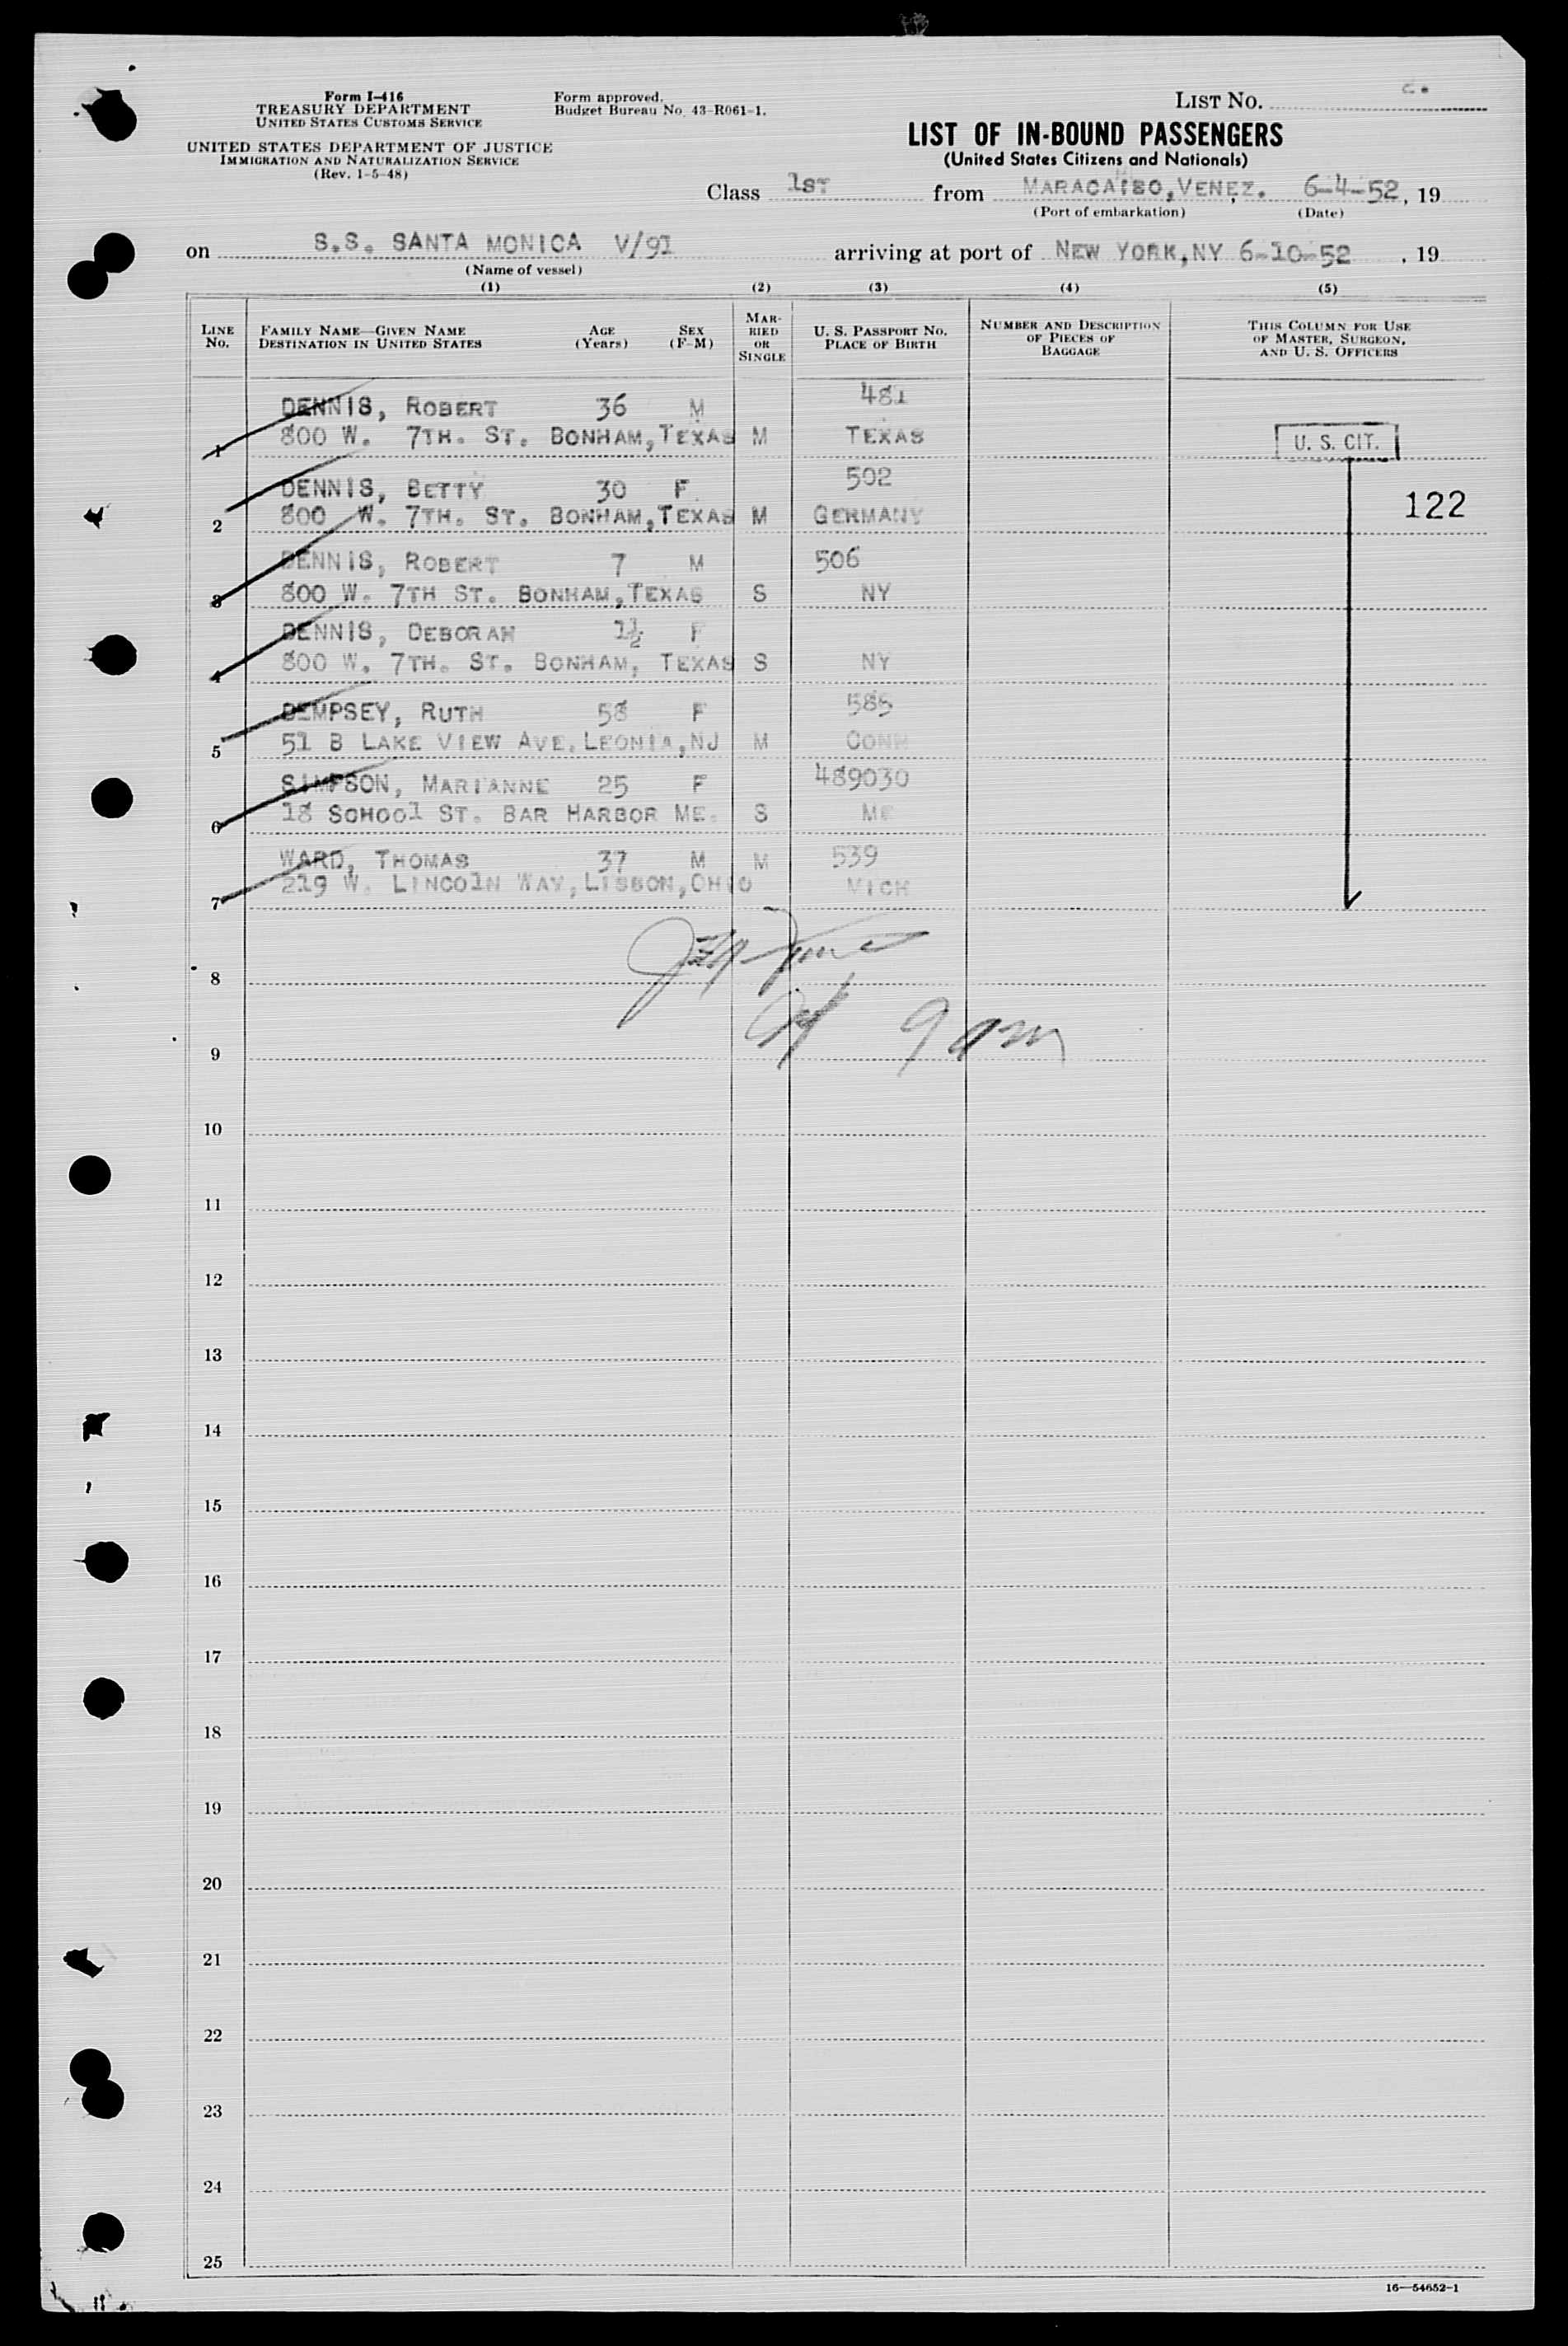 Form I-416
TREASURY DEPARTMENT
UNITED STATES CUSTOMS SERVICE
UNITED STATES DEPARTMENT OF JUSTICE
IMMIGRATION AND NATURALIZATION SERVICE
(Rev. 1-5-48)
Form approved.
Budget Bureau No. 43-R061-1.
LIST NO.
LIST OF IN-BOUND PASSENGERS
(United States Citizens and Nationals)
Class 1ST from MARACAIBO, VENEZ. 6-4-52, 19
(Port of embarkation) (Date)
on S.S. SANTA MONICA V/91 arriving at port of NEW YORK, NY 6-10-52, 19
(Name of vessel)
(1) (2) (3) (4) (5)
LINE NO.
FAMILY NAME—GIVEN NAME
DESTINATION IN UNITED STATES
AGE (Years)
SEX (F-M)
MARRIED OR SINGLE
U. S. PASSPORT NO.
PLACE OF BIRTH
NUMBER AND DESCRIPTION OF PIECES OF BAGGAGE
THIS COLUMN FOR USE OF MASTER, SURGEON, AND U. S. OFFICERS
DENNIS, ROBERT 36 M 481
1 800 W. 7TH. ST. BONHAM, TEXAS M TEXAS U. S. CIT.
DENNIS, BETTY 30 F 502 122
2 800 W. 7TH. ST. BONHAM, TEXAS M GERMANY
DENNIS, ROBERT 7 M 506
3 800 W. 7TH ST. BONHAM, TEXAS S NY
DENNIS, DEBORAH 1½ F
4 800 W. 7TH. ST. BONHAM, TEXAS S NY
DEMPSEY, RUTH 58 F 585
5 51 B LAKE VIEW AVE. LEONIA, NJ M CONN
SIMPSON, MARIANNE 25 F 489030
6 18 SCHOOL ST. BAR HARBOR ME. S ME
WARD, THOMAS 37 M M 539
7 219 W. LINCOLN WAY, LISBON, OHIO MICH
8
9 9 am
10
11
12
13
14
15
16
17
18
19
20
21
22
23
24
25
16—54652-1